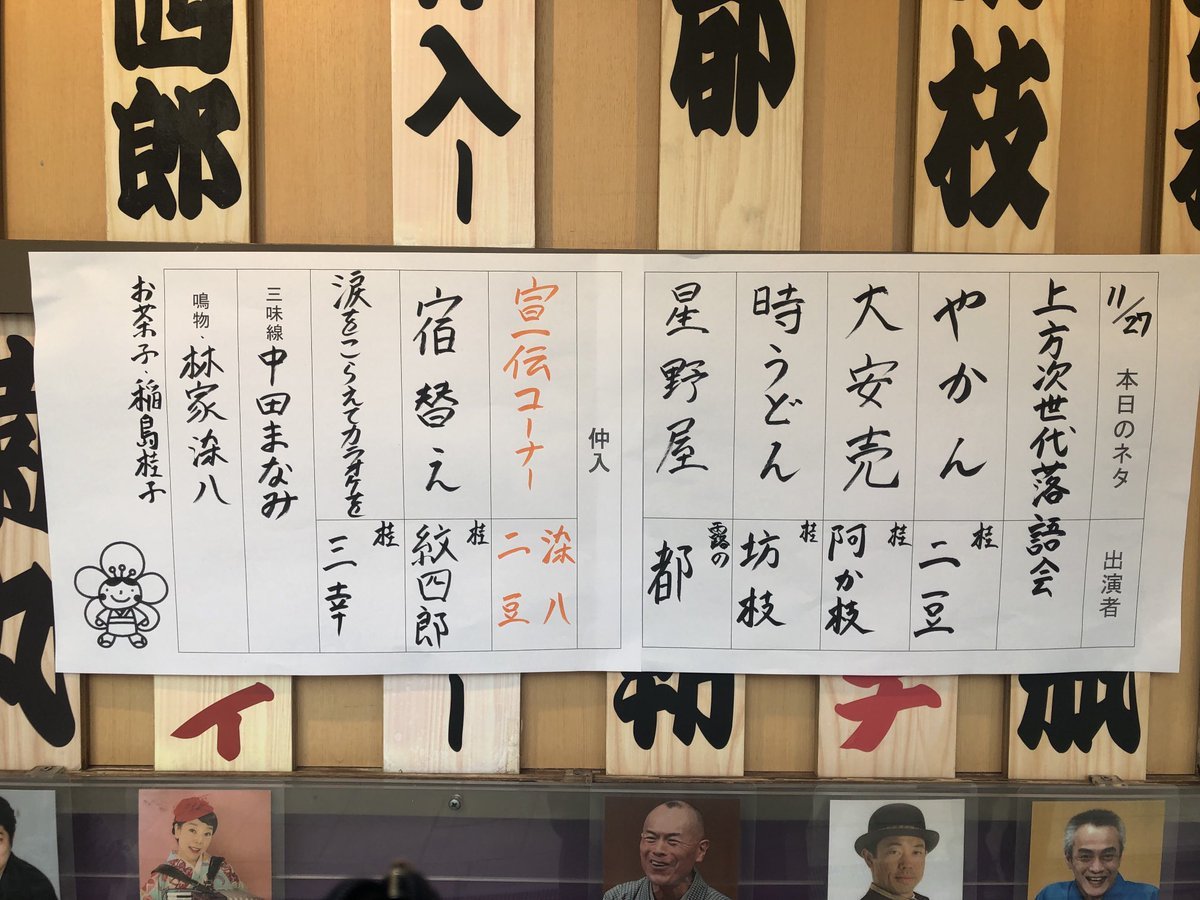 四郎
入一
都
枝
11/27 本日のネタ 出演者
上方次世代落語会
やかん 桂 二豆
大安売 桂 阿か枝
時うどん 桂 坊枝
星野屋 露の 都
仲入
宣伝コーナー 染八 二豆
宿替え 桂 紋四郎
涙をこらえてカラオケを 桂 三幸
三味線 中田まなみ
鳴物・林家染八
お茶子・稲島桂子